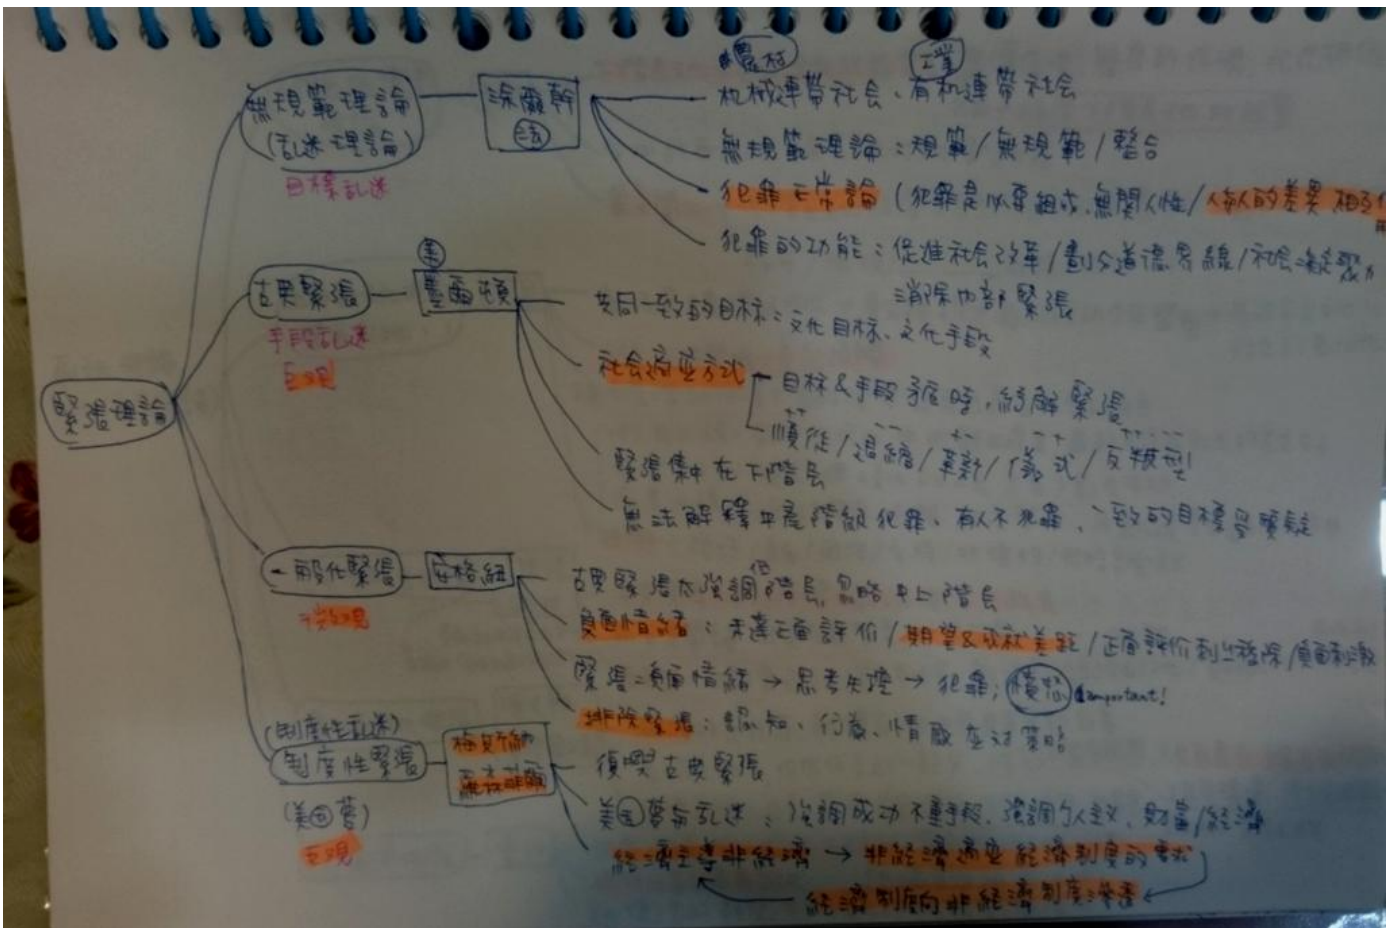 緊張理論
無規範理論
(乱迷理論)
目標乱迷
涂爾幹
法
農村 工業
机械連帶社会、有机連帶社会
無規範理論:規範/無規範/整合
犯罪正常論(犯罪是必要組成、無關人性/人與人的差異相互作用
犯罪的功能:促進社会改革/劃分道德界線/社会凝聚力
消除内部緊張
古典緊張
手段乱迷
巨观
美
墨爾頓
共同一致的目标:文化目标、文化手段
社会適應方式
目标&手段矛盾時,紓解緊張
++ -- +- -+ ++--
順從/退縮/革新/儀式/反叛型
緊張集中在下階层
無法解釋中產階級犯罪、有人不犯罪、一致的目標是質疑
一般化緊張
微观
安格紐
古典緊張太強調低階层,忽略中上階层
負面情緒:未達正面評价/期望&成就差距/正面評价刺激移除/負面刺激
緊張→負面情緒→思考失控→犯罪;憤怒 important!
排除緊張:認知、行為、情感应对策略
(制度性乱迷)
制度性緊張
(美国夢)
巨观
梅斯納
羅森菲爾
復興古典緊張
美国夢与乱迷:強調成功不重手段、強調个人主义、財富/經濟
經濟主導非經濟→非經濟適應經濟制度的要求
經濟制度向非經濟制度滲透